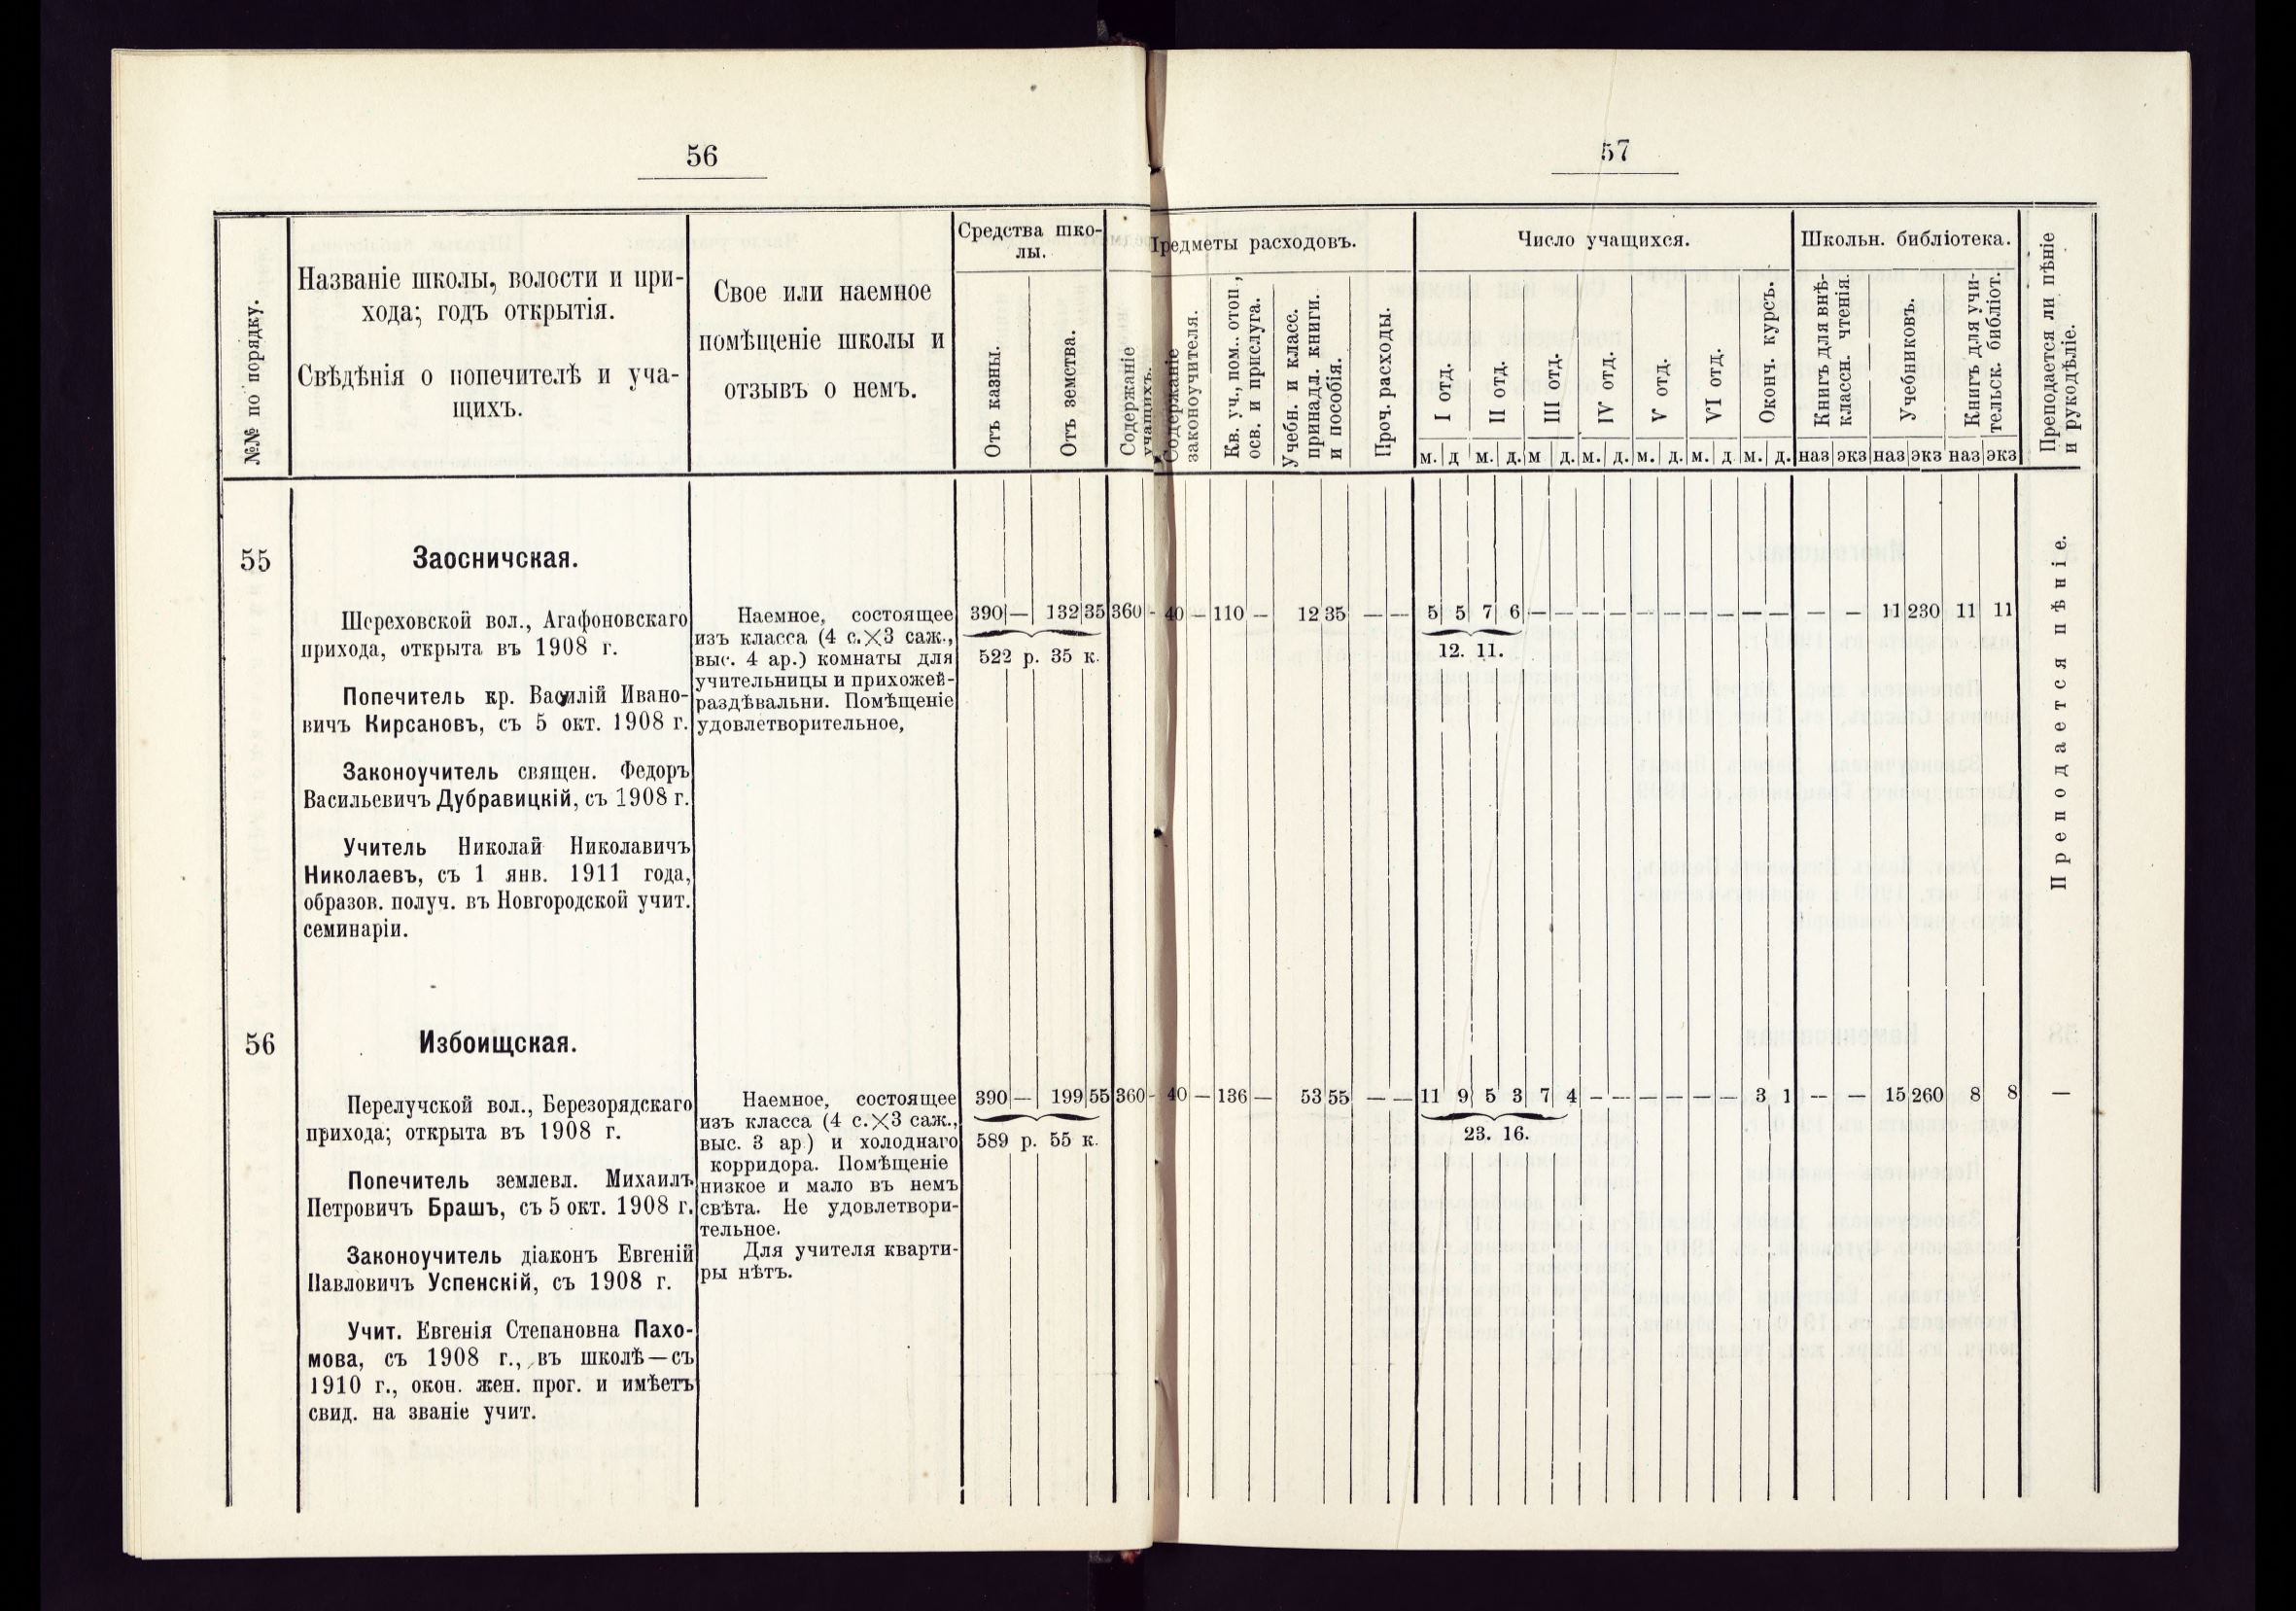 56
57
№№ по порядку.
Названіе школы, волости и при-
хода; годъ открытія.
Свѣдѣнія о попечителѣ и уча-
щихъ.
Свое или наемное
помѣщеніе школы и
отзывъ о немъ.
Средства шко-
лы.
Отъ казны.
Отъ земства.
Предметы расходовъ.
Содержаніе
учащихъ.
Содержаніе
законоучителя.
Кв. уч., пом.. отоп.,
осв. и прислуга.
Учебн. и класс.
принадл. книги.
и пособія.
Проч. расходы.
Число учащихся.
I отд.
II отд.
III отд.
IV отд.
V отд.
VI отд.
Оконч. курсъ.
м. д м. д. м д. м. д. м. д. м. д м. д.
Школьн. библіотека.
Книгъ для внѣ-
классн. чтенія.
Учебниковъ.
Книгъ для учи-
тельск. библіот.
наз экз наз экз наз экз
Преподается ли пѣніе
и рукодѣліе.
55
Заосничская.
Шереховской вол., Агафоновскаго
прихода, открыта въ 1908 г.
Попечитель кр. Василій Ивано-
вичъ Кирсановъ, съ 5 окт. 1908 г.
Законоучитель священ. Федоръ
Васильевичъ Дубравицкій, съ 1908 г.
Учитель Николай Николавичъ
Николаевъ, съ 1 янв. 1911 года,
образов. получ. въ Новгородской учит.
семинаріи.
Наемное, состоящее
изъ класса (4 с.×3 саж.,
выс. 4 ар.) комнаты для
учительницы и прихожей-
раздѣвальни. Помѣщеніе
удовлетворительное,
390 — 132 35 360 - 40 — 110 — 12 35 — — 5 5 7 6 — — — — — — — — — — — — 11 230 11 11
522 р. 35 к.
12. 11.
Преподается пѣніе.
56
Избоищская.
Перелучской вол., Березорядскаго
прихода; открыта въ 1908 г.
Попечитель землевл. Михаилъ
Петровичъ Брашъ, съ 5 окт. 1908 г.
Законоучитель діаконъ Евгеній
Павловичъ Успенскій, съ 1908 г.
Учит. Евгенія Степановна Пахо-
мова, съ 1908 г., въ школѣ—съ
1910 г., окон. жен. прог. и имѣетъ
свид. на званіе учит.
Наемное, состоящее
изъ класса (4 с.×3 саж.,
выс. 3 ар.) и холоднаго
корридора. Помѣщеніе
низкое и мало въ немъ
свѣта. Не удовлетвори-
тельное.
Для учителя кварти-
ры нѣтъ.
390 — 199 55 360 - 40 — 136 — 53 55 — — 11 9 5 3 7 4 — — — — — — 3 1 — — 15 260 8 8 —
589 р. 55 к.
23. 16.